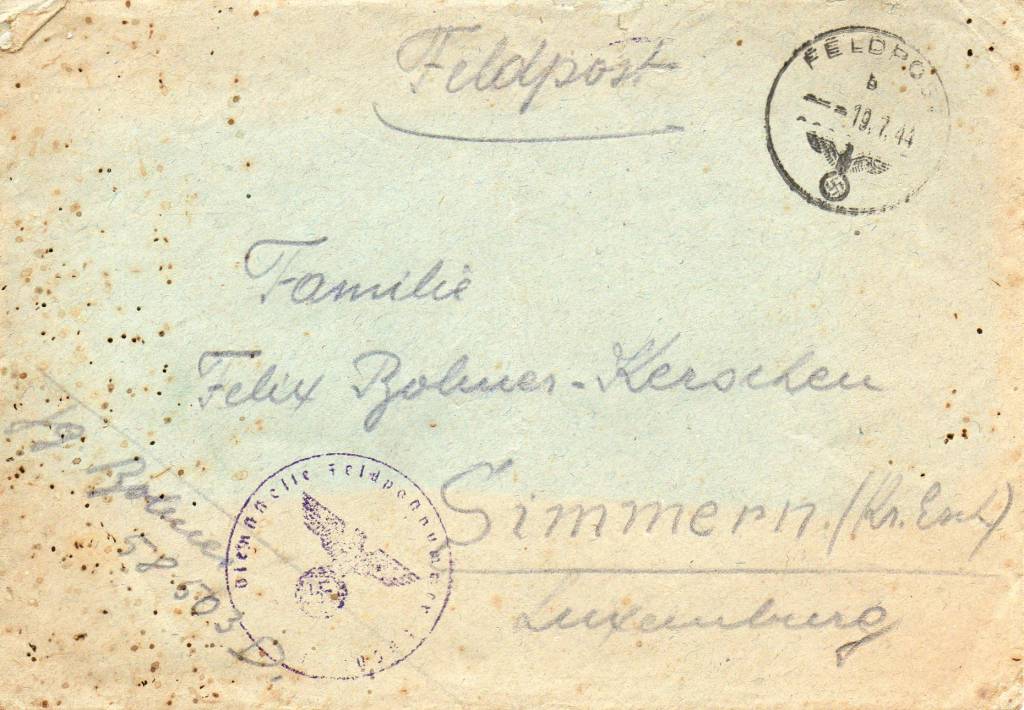 Feldpost
FELDPOST
b
19.7.44
Familie
Felix Bohmer-Kerschen
Simmern (Kr. Esch)
Luxemburg
58 503 D.
Dienststelle Feldpostnummer